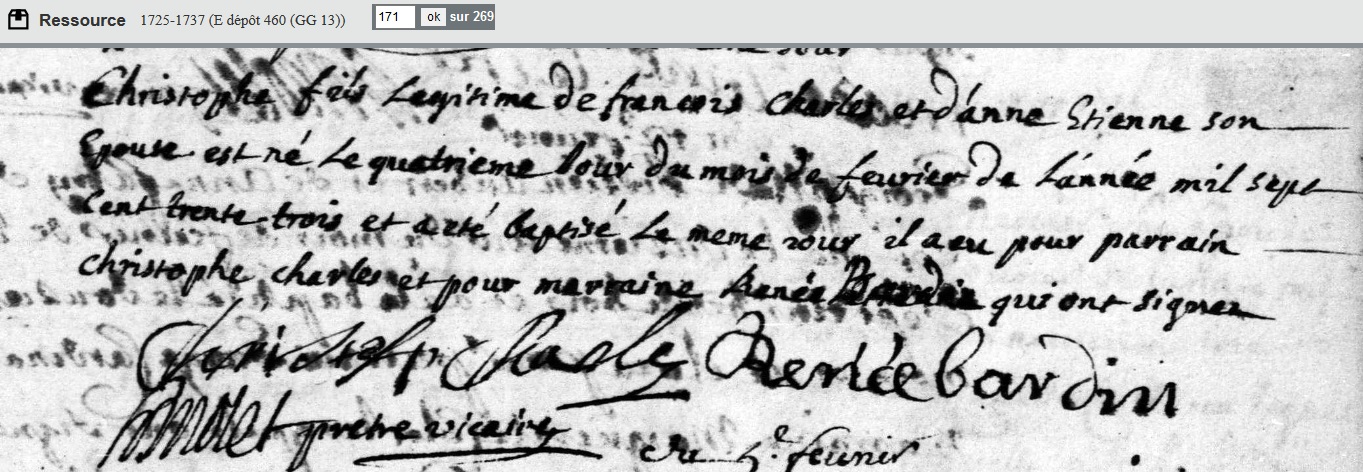 Ressource 1725-1737 (E dépôt 460 (GG 13)) 171 ok sur 269
Christophe fils Legitime de francois Charles et d'anne Etienne son
Epouse est né Le quatrieme Iour du mois de feurier de L'année mil sept
Cent trente trois et a eté baptisé Le meme iour il a eu pour parrain
christophe charles et pour marraine Renée Bardin qui ont signez
Christophe Charle Renée bardin
pretre vicaire
du 5e feurier